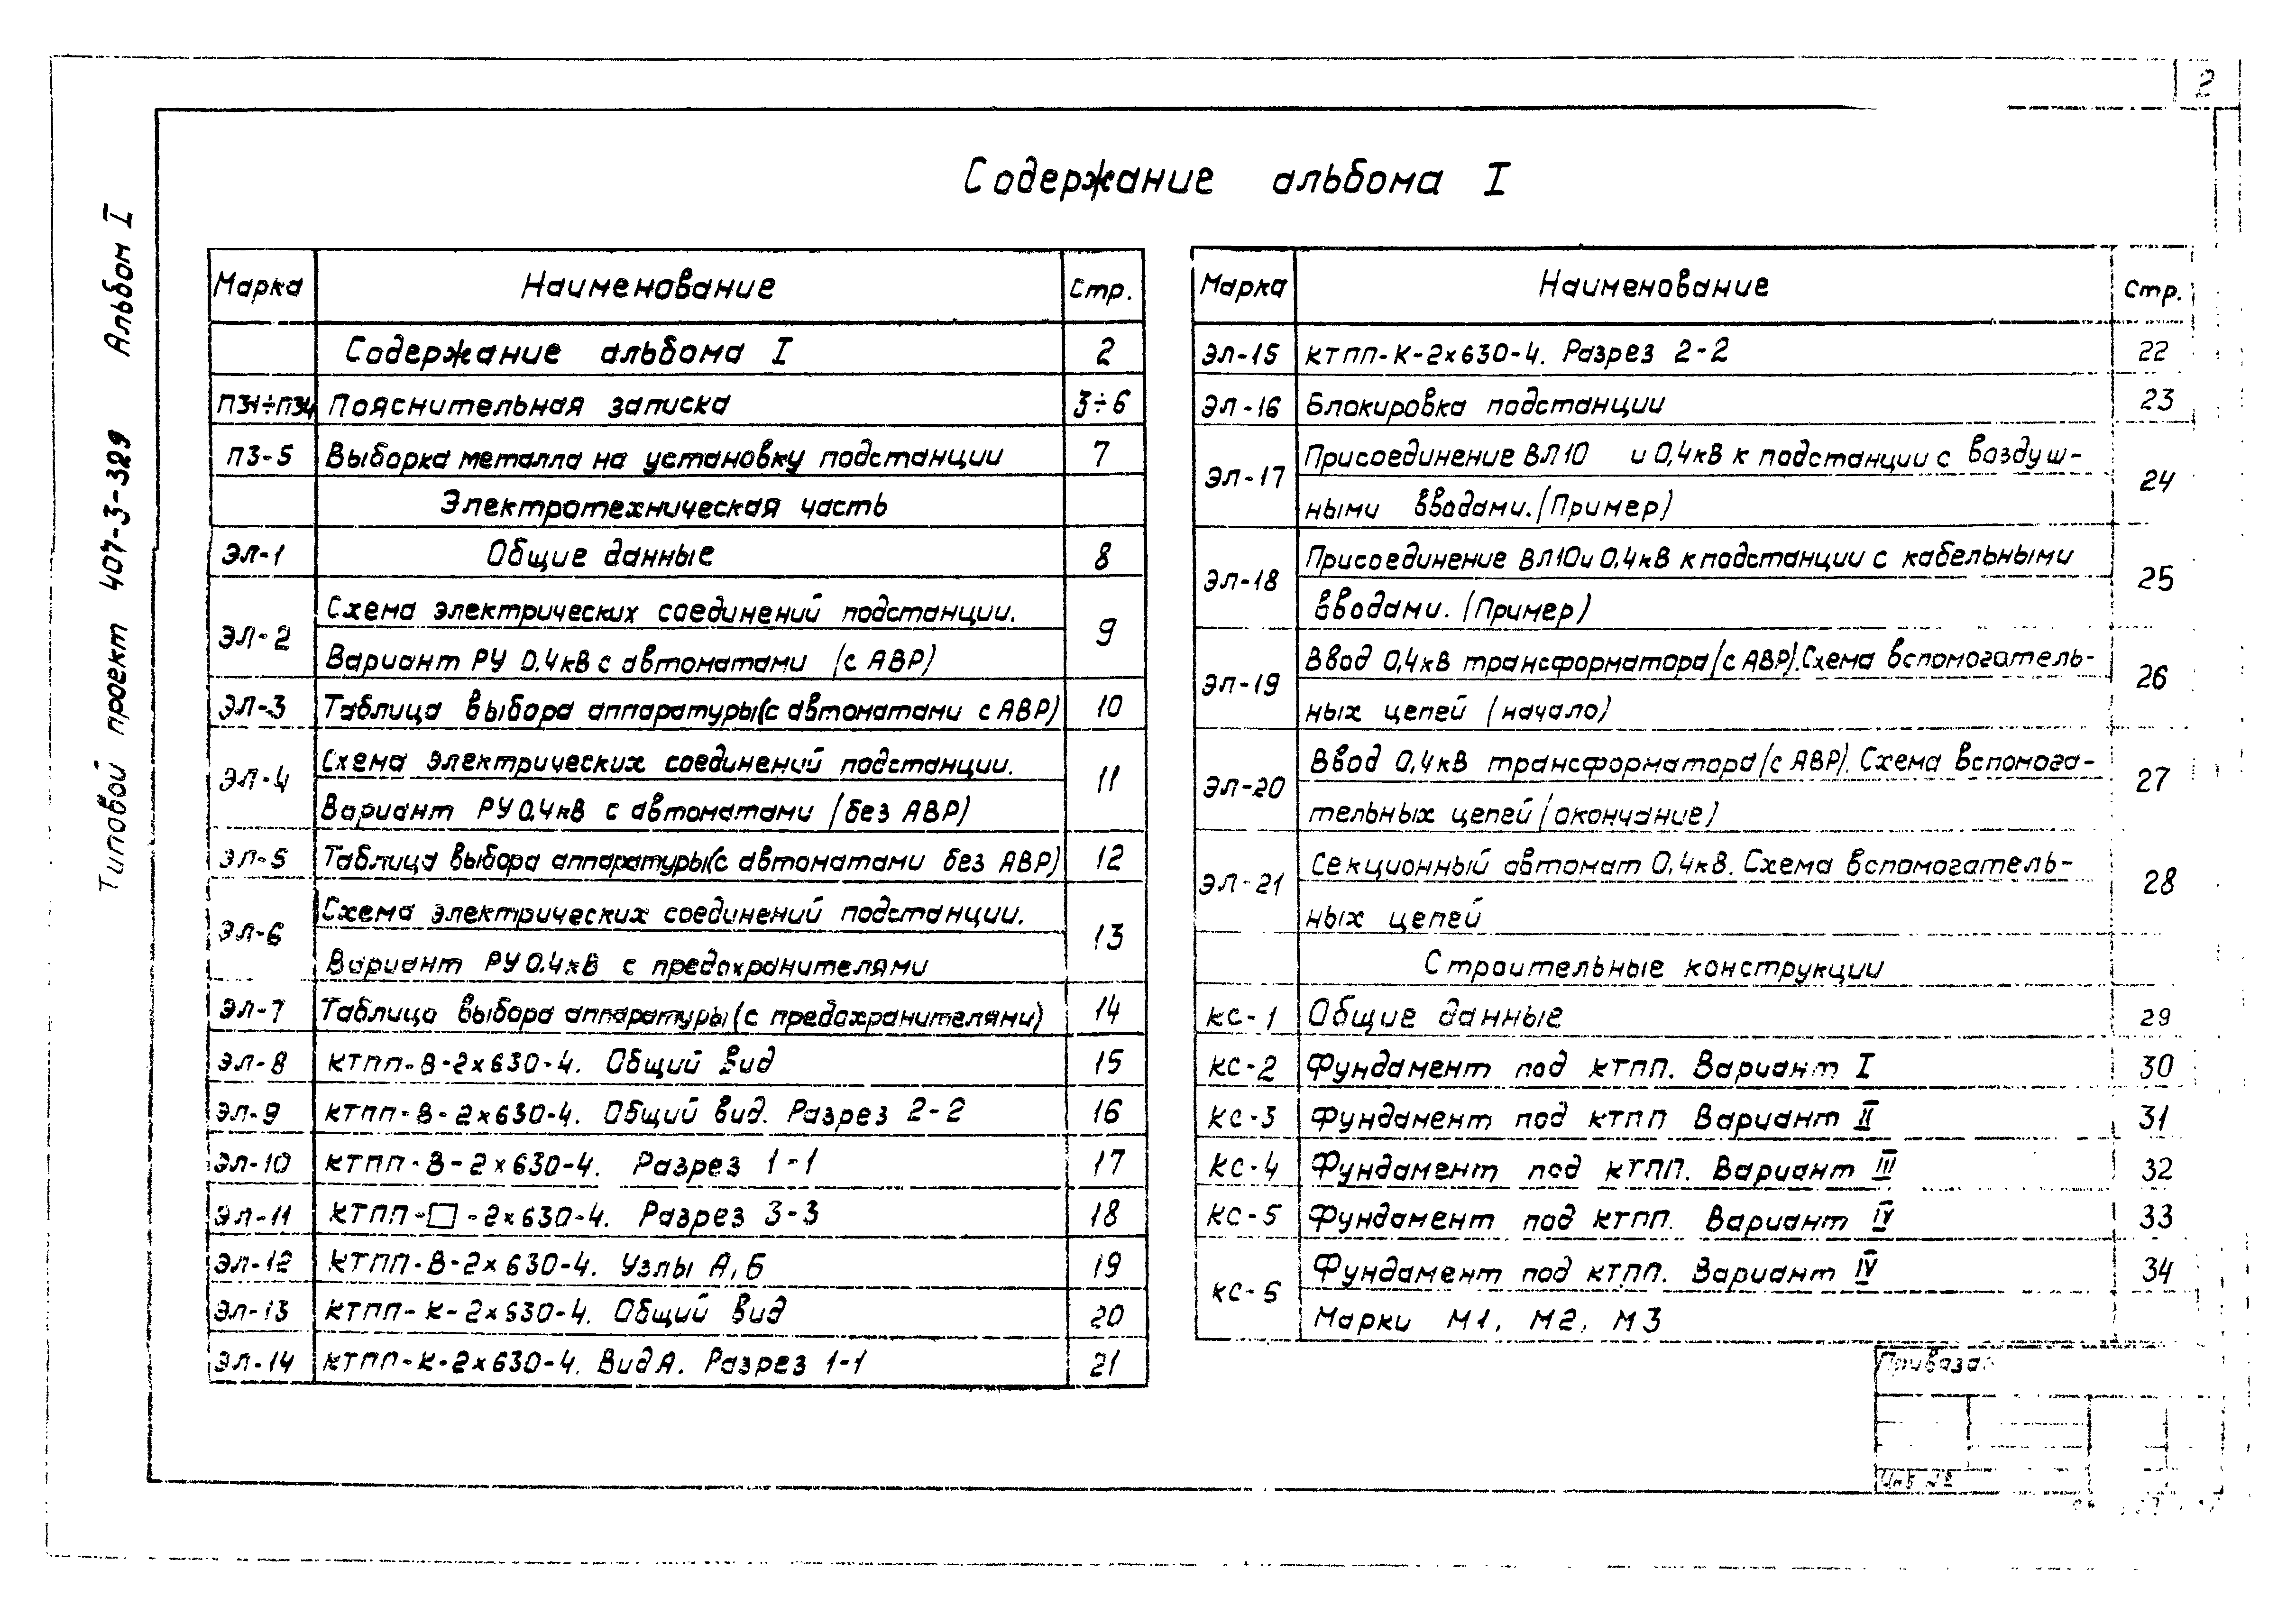 2
Типовой проект 407-3-329 Альбом I
Содержание альбома I
Марка Наименование Стр.
Содержание альбома I 2
ПЗ1÷ПЗ4 Пояснительная записка 3÷6
ПЗ-5 Выборка металла на установку подстанции 7
Электротехническая часть
ЭЛ-1 Общие данные 8
ЭЛ-2 Схема электрических соединений подстанции. 9
Вариант РУ 0,4кВ с автоматами (с АВР)
ЭЛ-3 Таблица выбора аппаратуры(с автоматами с АВР) 10
ЭЛ-4 Схема электрических соединений подстанции. 11
Вариант РУ 0,4кВ с автоматами (без АВР)
ЭЛ-5 Таблица выбора аппаратуры(с автоматами без АВР) 12
ЭЛ-6 Схема электрических соединений подстанции. 13
Вариант РУ 0,4кВ с предохранителями
ЭЛ-7 Таблица выбора аппаратуры(с предохранителями) 14
ЭЛ-8 КТПП-В-2×630-4. Общий вид 15
ЭЛ-9 КТПП-В-2×630-4. Общий вид. Разрез 2-2 16
ЭЛ-10 КТПП-В-2×630-4. Разрез 1-1 17
ЭЛ-11 КТПП-□-2×630-4. Разрез 3-3 18
ЭЛ-12 КТПП-В-2×630-4. Узлы А, Б 19
ЭЛ-13 КТПП-К-2×630-4. Общий вид 20
ЭЛ-14 КТПП-К-2×630-4. Вид А. Разрез 1-1 21
Марка Наименование Стр.
ЭЛ-15 КТПП-К-2×630-4. Разрез 2-2 22
ЭЛ-16 Блокировка подстанции 23
ЭЛ-17 Присоединение ВЛ10 и 0,4кВ к подстанции с воздуш- 24
ными вводами. (Пример)
ЭЛ-18 Присоединение ВЛ10 и 0,4кВ к подстанции с кабельными 25
вводами. (Пример)
ЭЛ-19 Ввод 0,4кВ трансформатора(с АВР). Схема вспомогатель- 26
ных цепей (начало)
ЭЛ-20 Ввод 0,4кВ трансформатора(с АВР). Схема вспомога- 27
тельных цепей (окончание)
ЭЛ-21 Секционный автомат 0,4кВ. Схема вспомогатель- 28
ных цепей
Строительные конструкции
КС-1 Общие данные 29
КС-2 Фундамент под КТПП. Вариант I 30
КС-3 Фундамент под КТПП Вариант II 31
КС-4 Фундамент под КТПП. Вариант III 32
КС-5 Фундамент под КТПП. Вариант IV 33
КС-6 Фундамент под КТПП. Вариант IV 34
Марки М1, М2, М3
Привязан
Инв №